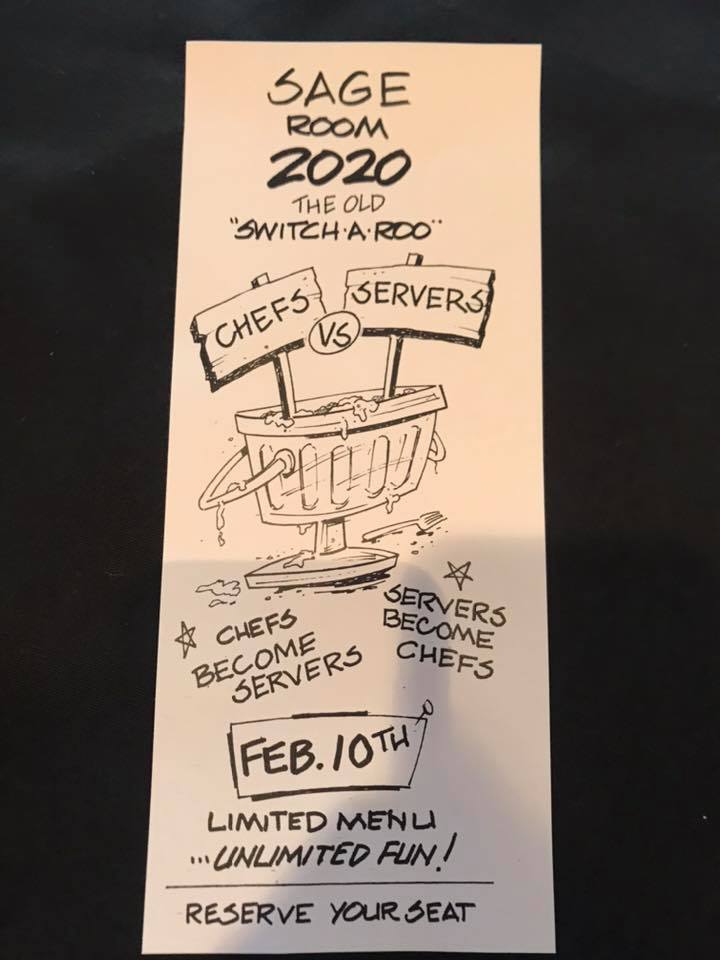 SAGE
ROOM
2020
THE OLD
"SWITCH·A·ROO"
CHEFS
VS
SERVERS
CHEFS
BECOME
SERVERS
SERVERS
BECOME
CHEFS
FEB. 10TH
LIMITED MENU
...UNLIMITED FUN!
RESERVE YOUR SEAT